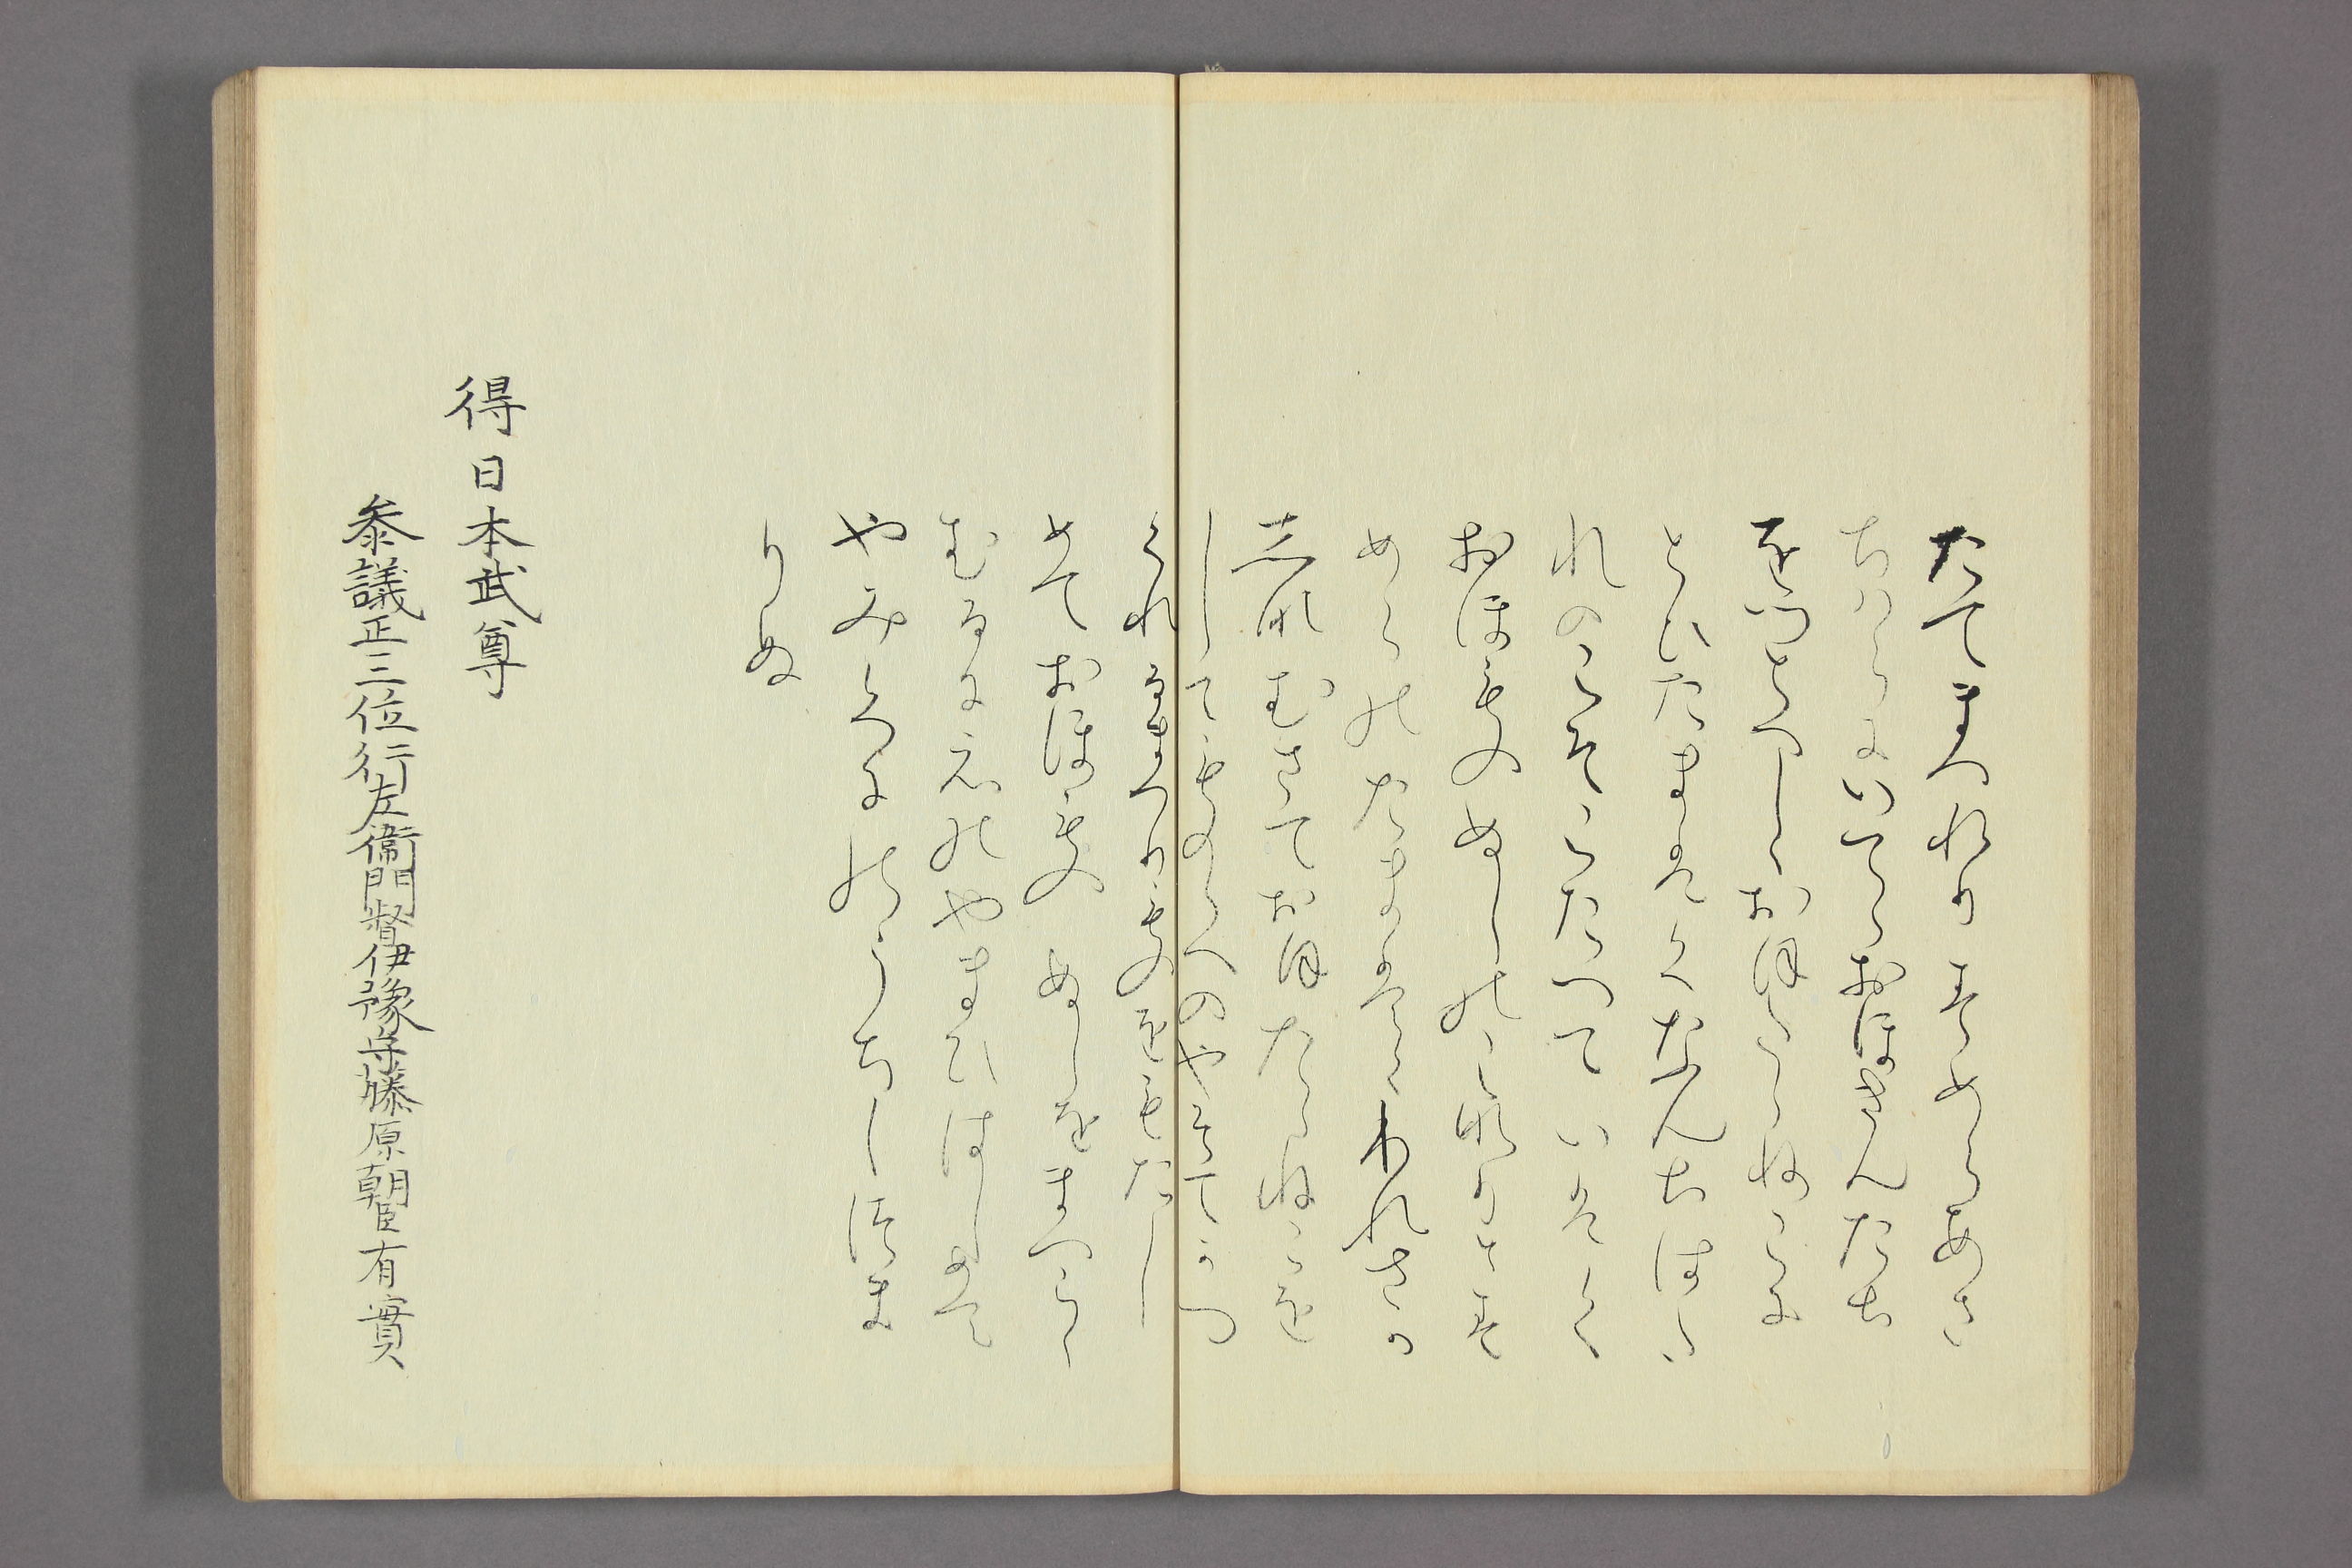 たてまつれりすめらあさ
ちはらにいてゝおほきんたち
をつとへておほたゝねこに
とひたまはくなんちはた
れのこそこたへていはく
おほものぬしのこなりとす
めらのたまはくわれさか
えなむさておほたゝねこを
してものゝへのやそてかつ
くれるまつりものをもたし
めておほものぬしをまつらし
むるにえのやまひはしめて
やみくにのうちしつま
りぬ
得日本武尊
参議正三位行左衛門督伊豫守藤原朝臣有實